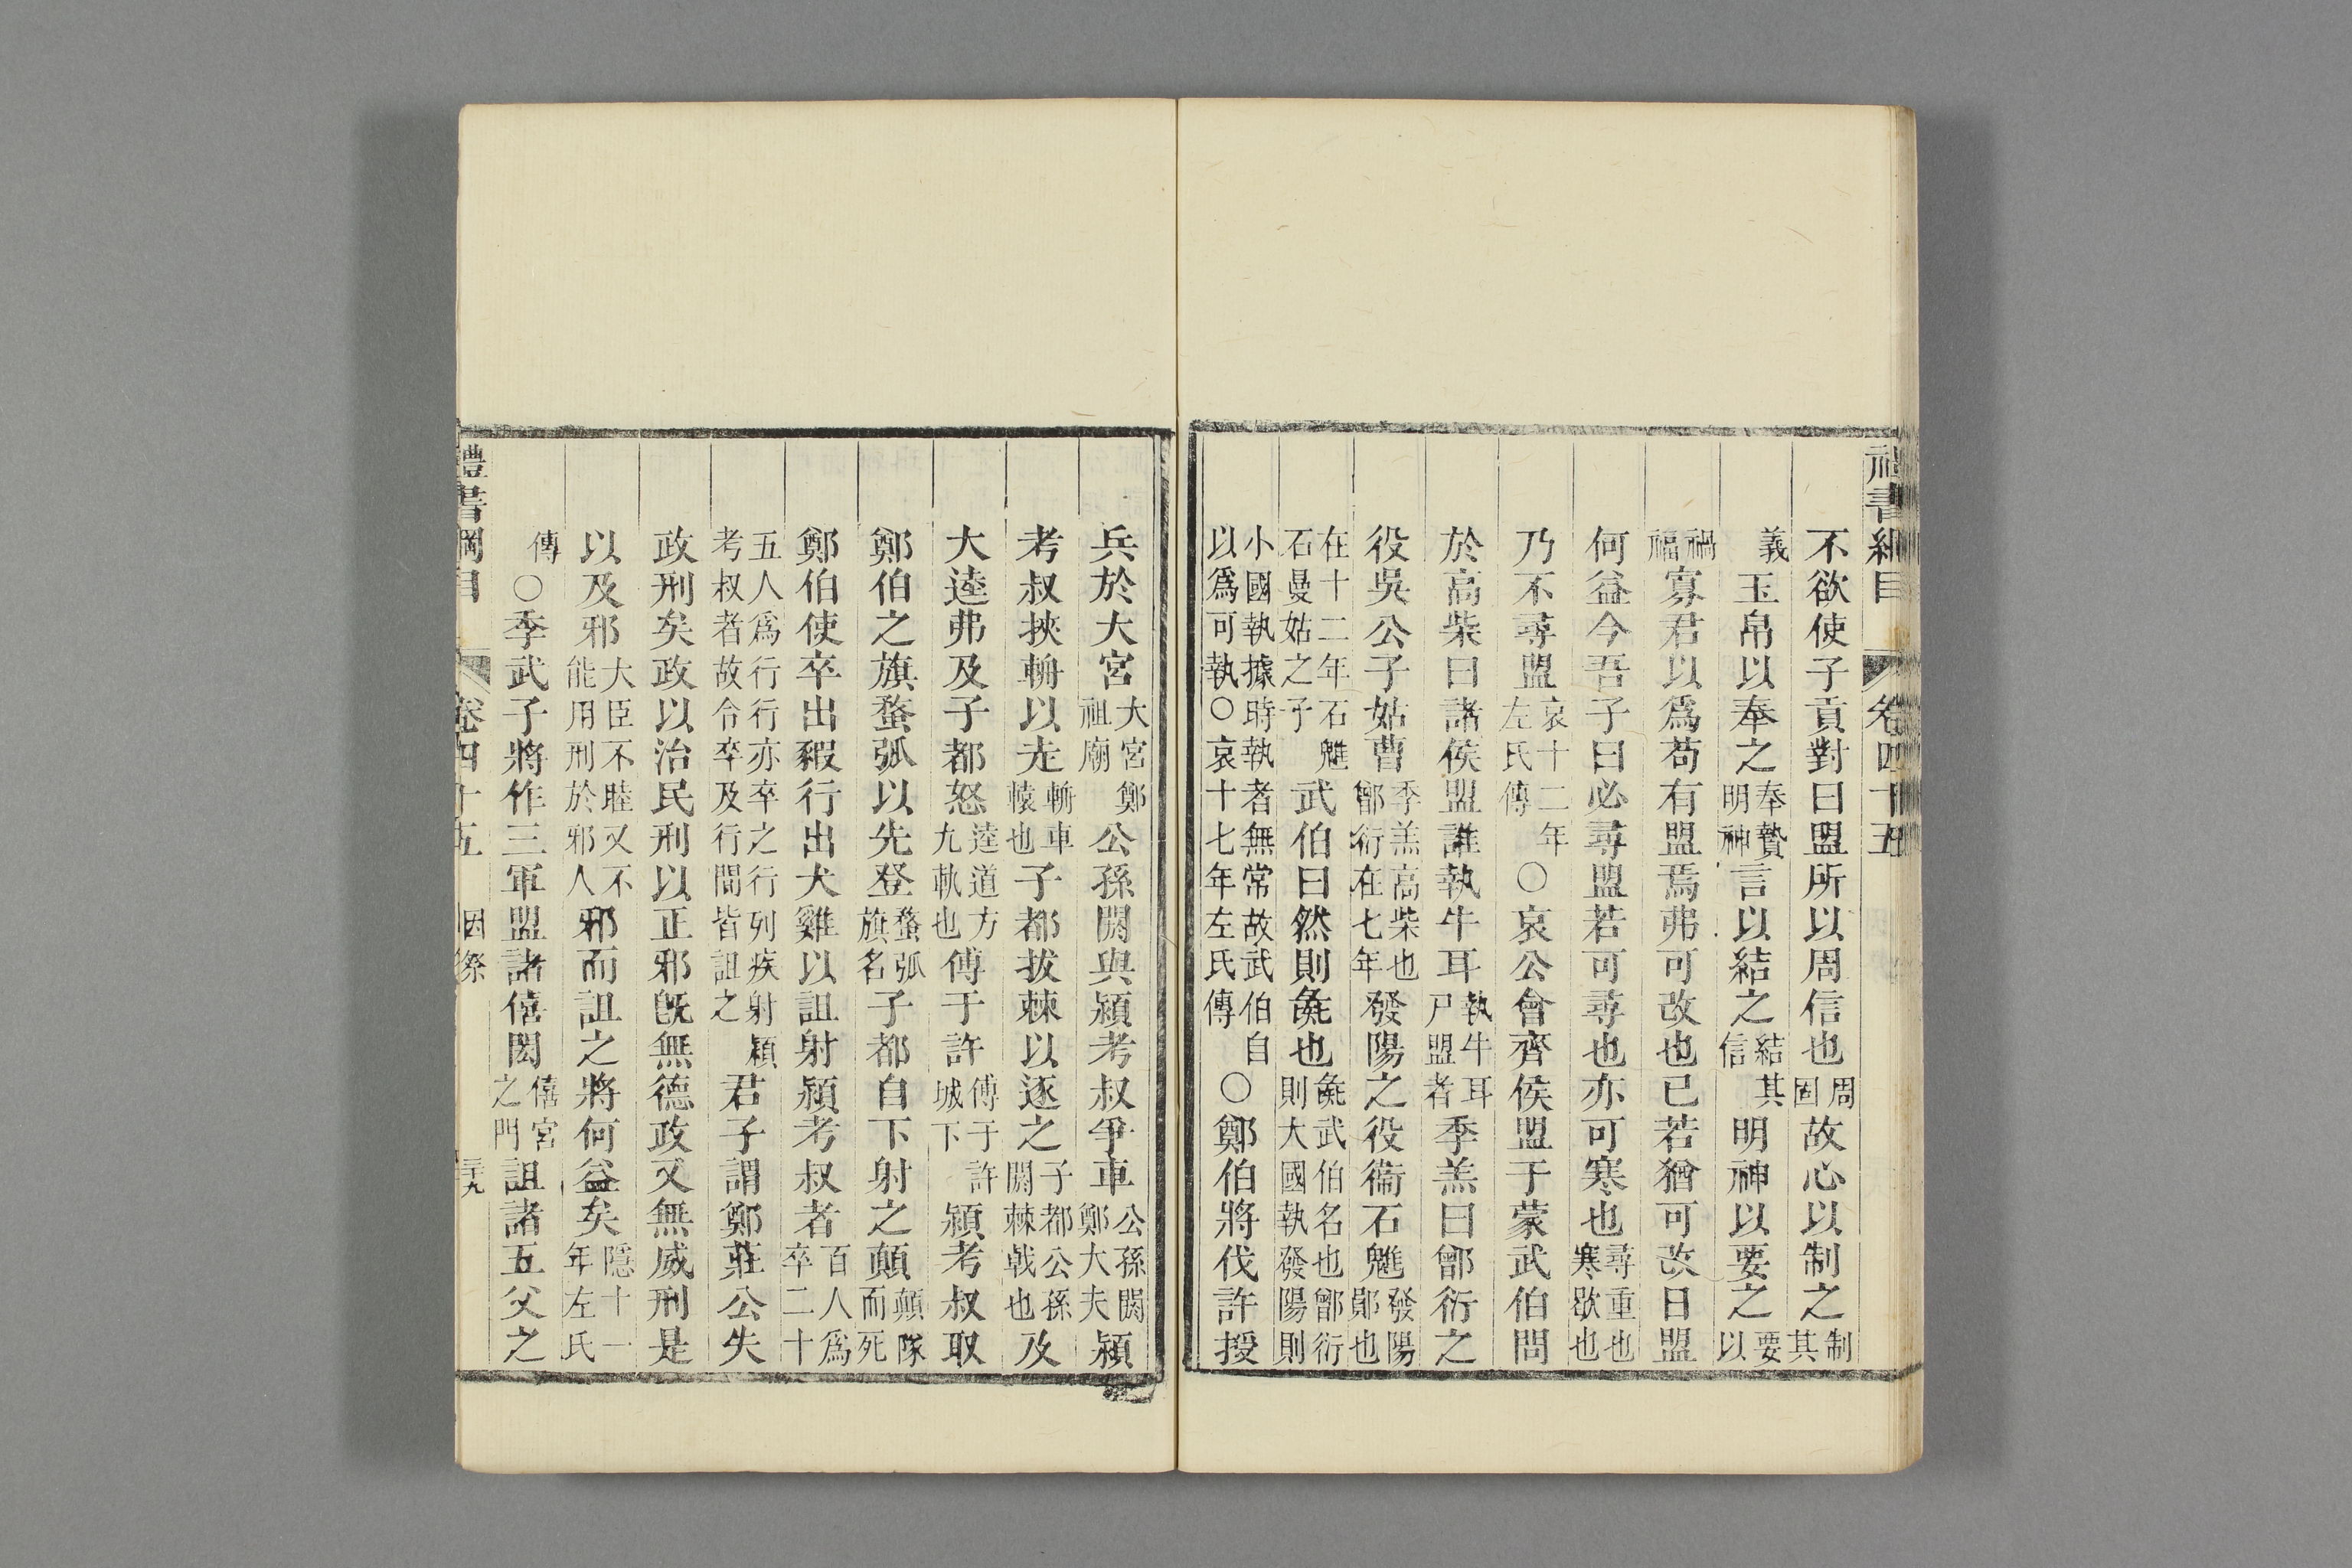 禮書綱目 卷四十五
不欲使子貢對曰盟所以周信也周固故心以制之制其
義玉帛以奉之奉贄明神言以結之結其信明神以要之要以
禍福寡君以爲苟有盟焉弗可改也已若猶可改日盟
何益今吾子曰必尋盟若可尋也亦可寒也尋重也寒歇也
乃不尋盟哀十二年左氏傳○哀公會齊侯盟于蒙武伯問
於高柴曰諸侯盟誰執牛耳執牛耳尸盟者季羔曰鄫衍之
役吳公子姑曹季羔高柴也鄫衍在七年發陽之役衞石魋發陽鄖也
在十二年石魋石曼姑之子武伯曰然則彘也彘武伯名也鄫衍則大國執發陽則
小國執據時執者無常故武伯自以爲可執○哀十七年左氏傳○鄭伯將伐許授
兵於大宮大宮鄭祖廟公孫閼與潁考叔爭車公孫閼鄭大夫潁
考叔挾輈以走輈車轅也子都拔棘以逐之子都公孫閼棘戟也及
大逵弗及子都怒逵道方九軌也傅于許傅于許城下潁考叔取
鄭伯之旗蝥弧以先登蝥弧旗名子都自下射之顛顛隊而死
鄭伯使卒出豭行出犬雞以詛射潁考叔者百人爲卒二十
五人爲行行亦卒之行列疾射潁考叔者故令卒及行間皆詛之君子謂鄭莊公失
政刑矣政以治民刑以正邪旣無德政又無威刑是
以及邪大臣不睦又不能用刑於邪人邪而詛之將何益矣隱十一年左氏
傳○季武子將作三軍盟諸僖閎僖宮之門詛諸五父之
禮書綱目 卷四十五 因祭 三十九